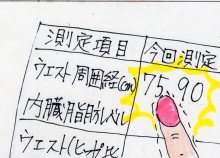 測定項目 今回測定
ウエスト周囲経(cm) 75.90
内臓脂肪レベル
ウエスト/ヒップ比